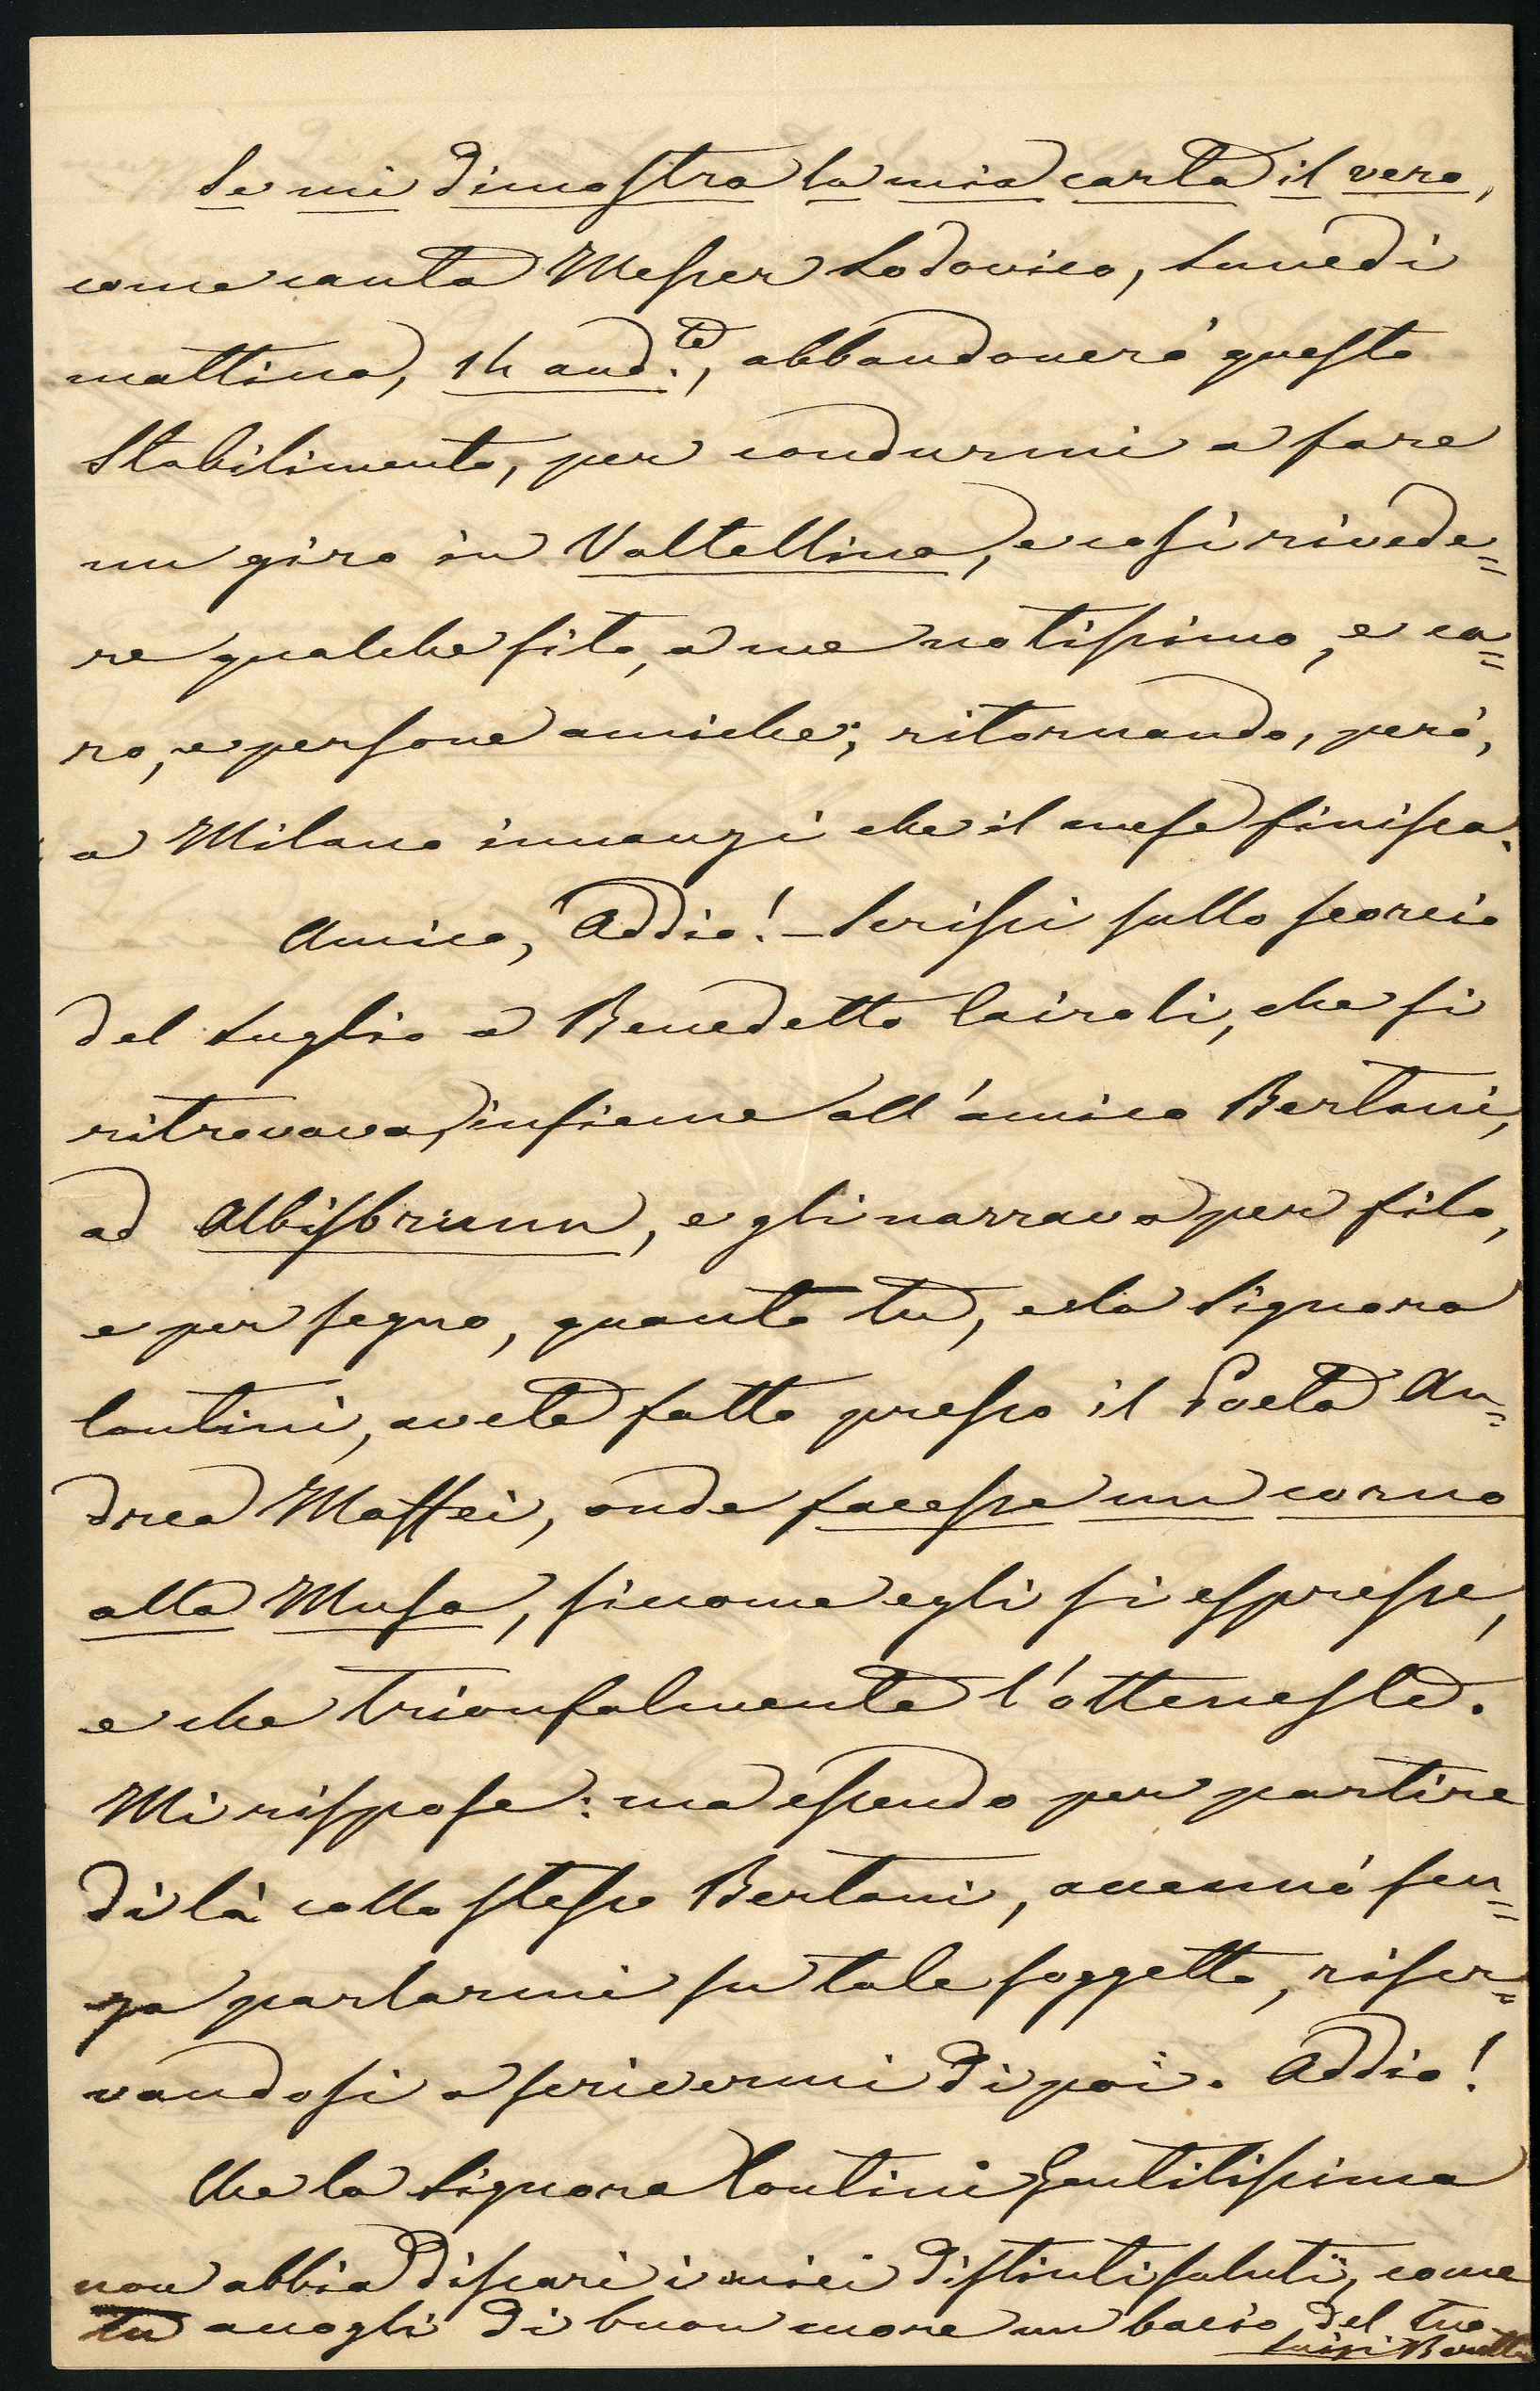 Se mi dimostra la mia carta il vero,
come canta Messer Lodovico, Lunedì
mattina, 14 and.te, abbandonerò questo
Stabilimento, per condurmi a fare
un giro in Valtellina, e così rivede=
re qualche sito, a me notissimo, e ca=
ro, e persone amiche; ritornando, però,
a Milano innanzi che il mese finisca.
Amico, Addio! – Scrissi sullo scorcio
del Luglio a Benedetto Cairoli, che si
ritrovava, insieme all'amico Bertani,
ad Albisbrunn, e gli narrava per filo,
e per segno, quanto tu, e la Signora
Contini, avete fatto presso il Poeta An=
drea Maffei, onde facesse un corno
alla Musa, siccome egli si espresse,
e che trionfalmente l'otteneste.
Mi rispose: ma essendo per partire
di là collo stesso Bertani, accennò sen=
za parlarmi su tale soggetto, riser=
vandosi a scrivermi di poi. Addio!
Che la Signora Contini Gentilissima
non abbia discari i miei distinti saluti, come
tu accogli di buon cuore un bacio del tuo
Luigi